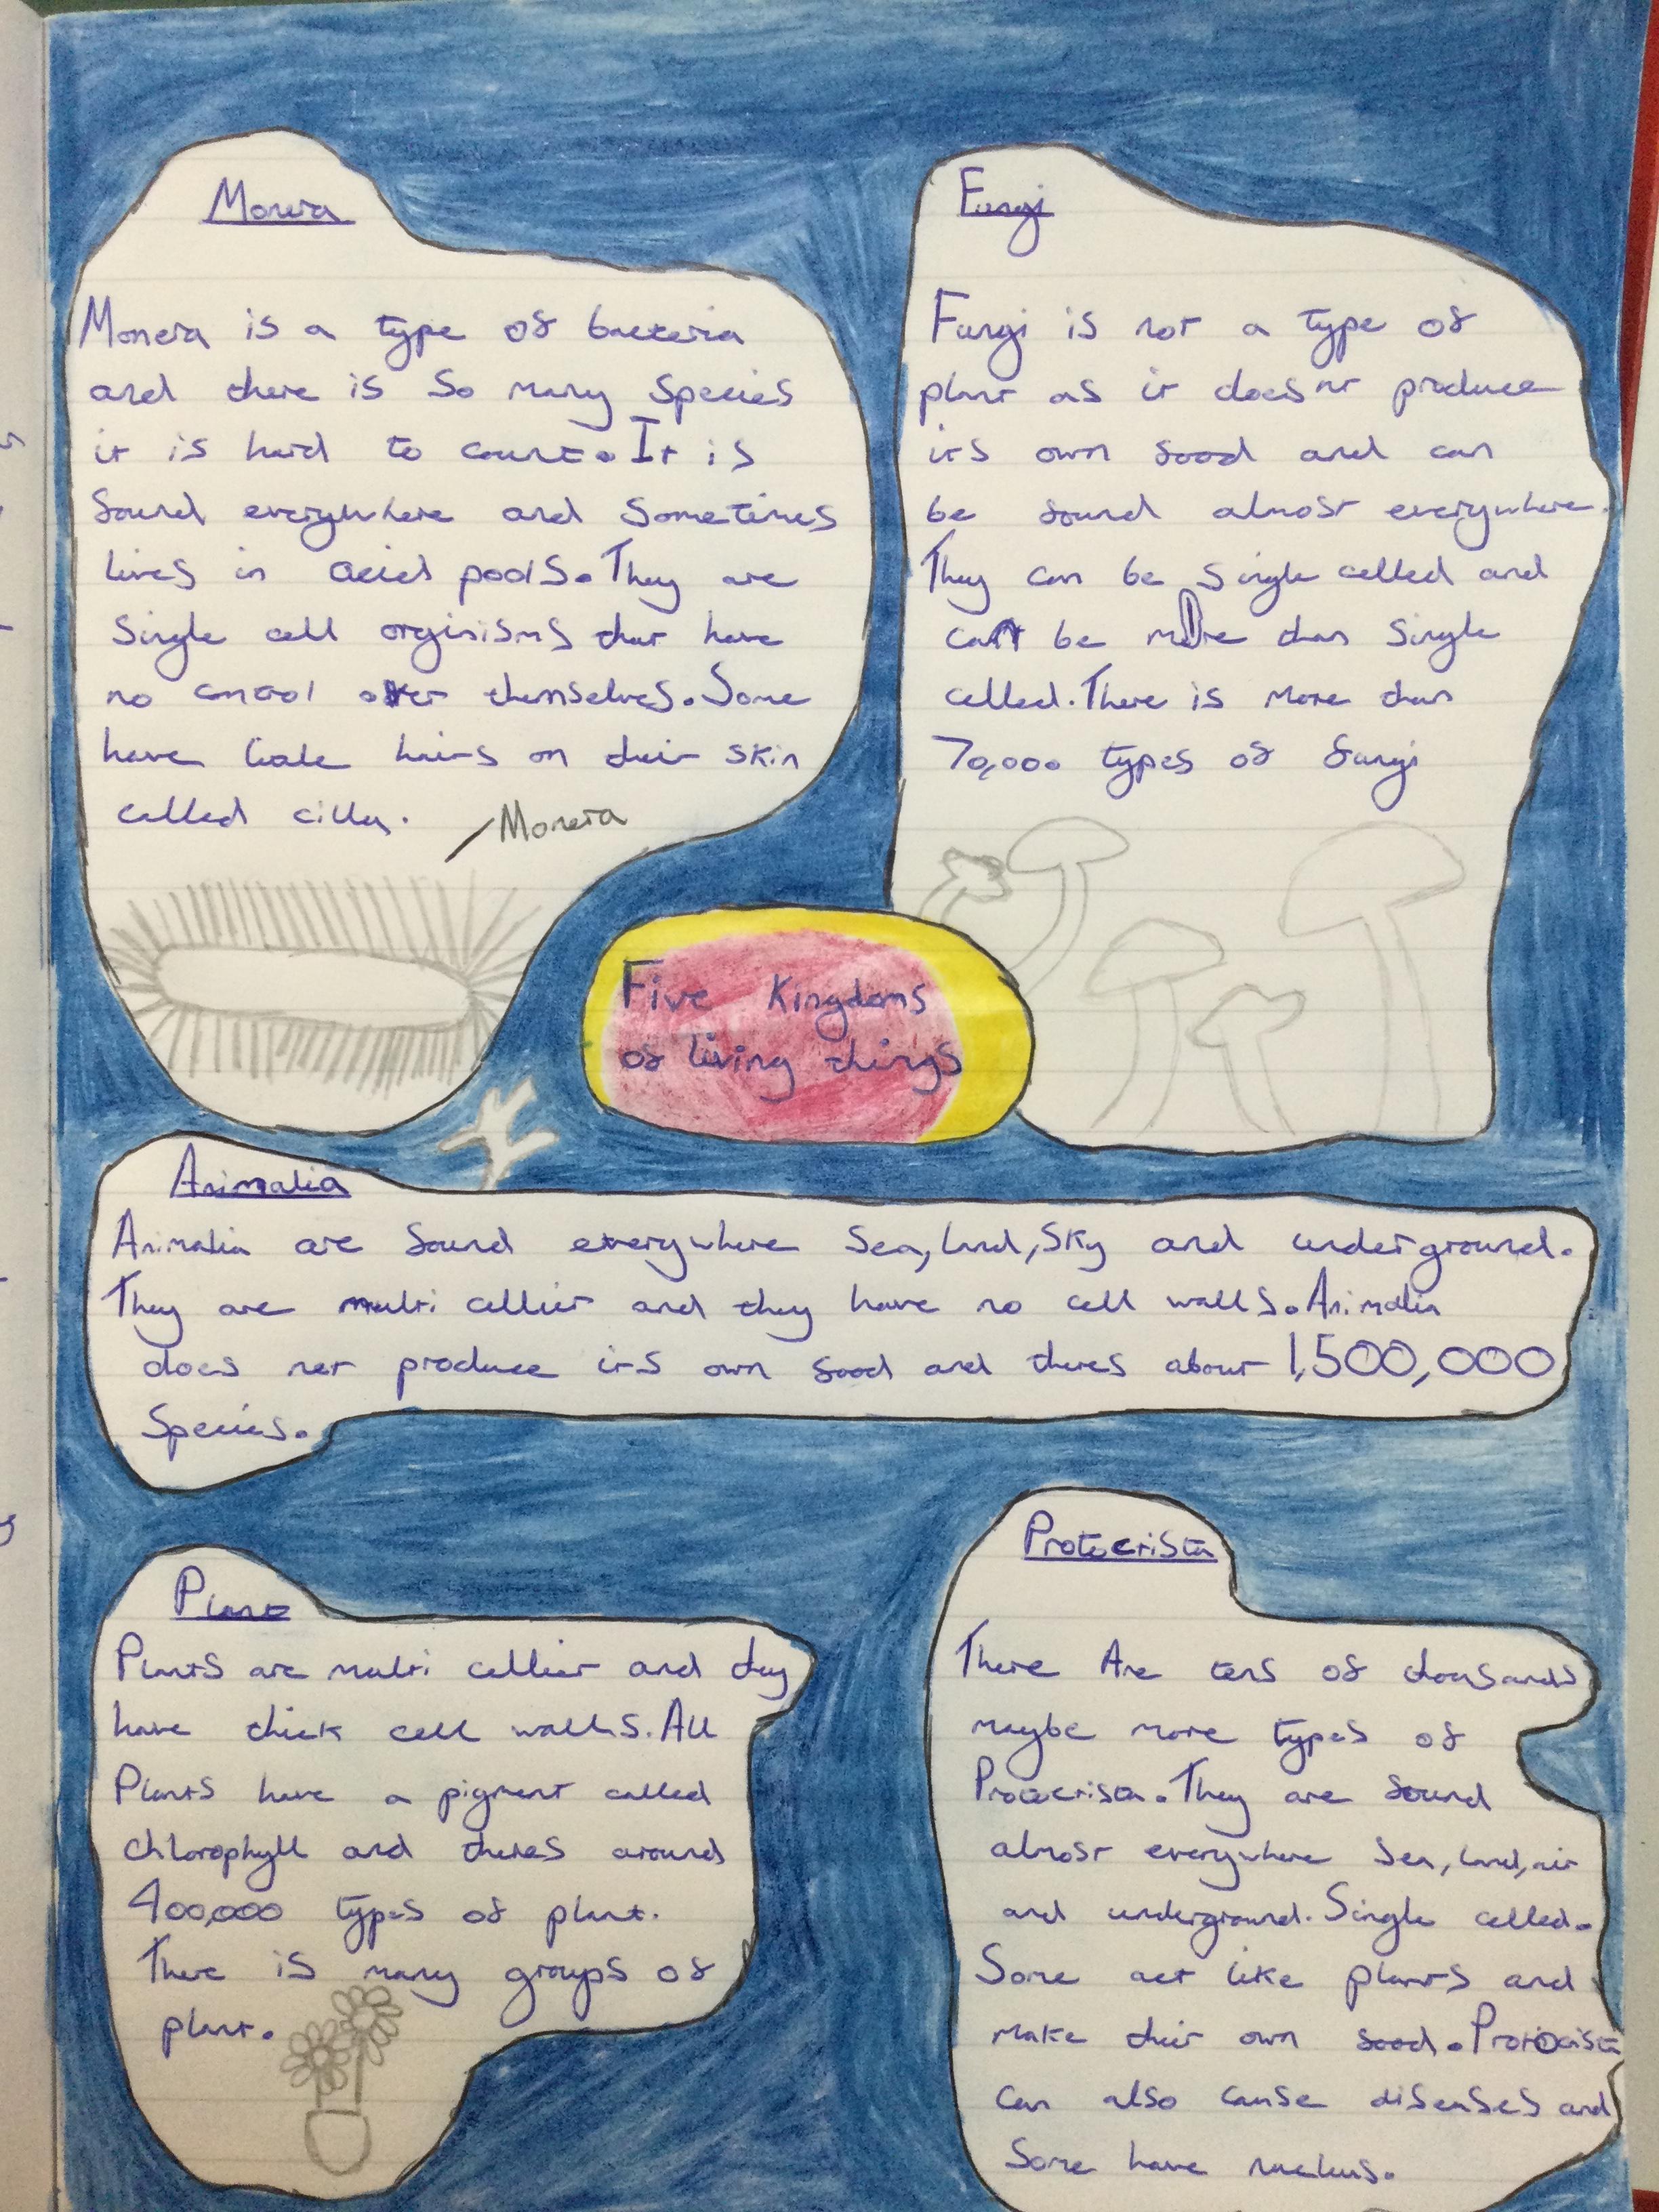 Monera
Monera is a type of bacteria
and there is so many species
it is hard to count. It is
found everywhere and sometimes
lives in acid pools. They are
single cell orginisms that have
no control over themselves. Some
have little hairs on their skin
called cilla.
Monera
Fungi
Fungi is not a type of
plant as it doesnt produce
its own food and can
be found almost everywhere.
They can be single celled and
can't be more than single
celled. There is more than
70,000 types of fungi
Five Kingdoms
of living things
Animalia
Animalia are found everywhere sea, land, sky and underground.
They are multi cellier and they have no cell walls. Animalia
does not produce its own food and theres about 1,500,000
species.
Plant
Plants are multi cellier and they
have thick cell walls. All
Plants have a pigment called
chlorophyll and theres around
400,000 types of plant.
There is many groups of
plant.
Protocrista
There Are tens of thousands
maybe more types of
Protocrista. They are found
almost everywhere sea, land, air
and underground. Single celled.
Some act like plants and
make their own food. Protocista
can also cause diseases and
Some have nucleus.